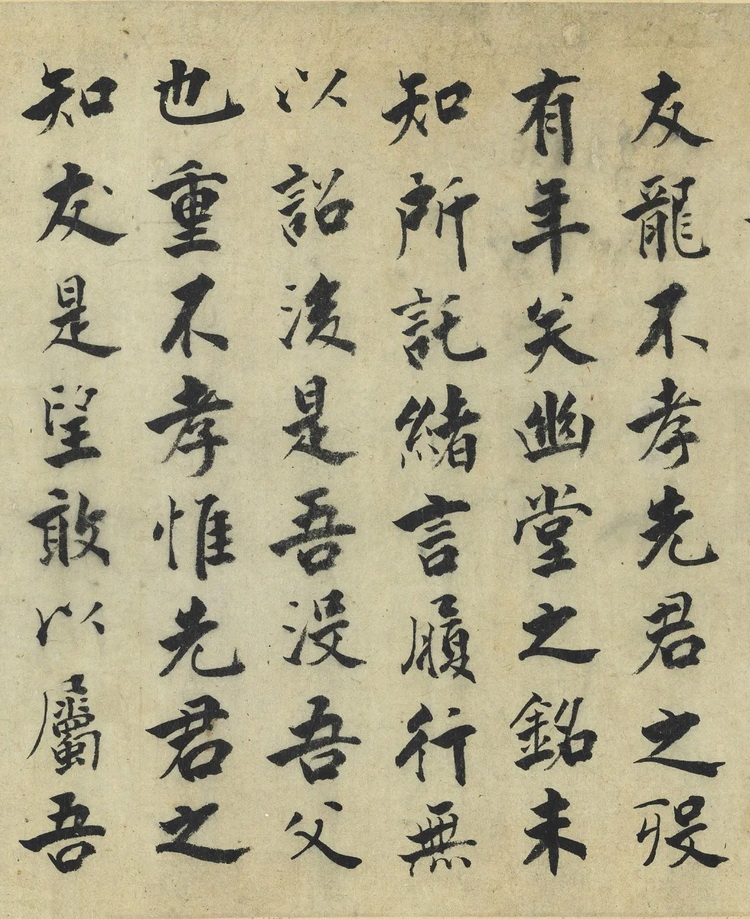 友龍不孝先君之歿
有年矣幽堂之銘未
知所託緒言履行無
以詔後是吾沒吾父
也重不孝惟先君之
知友是望敢以屬吾